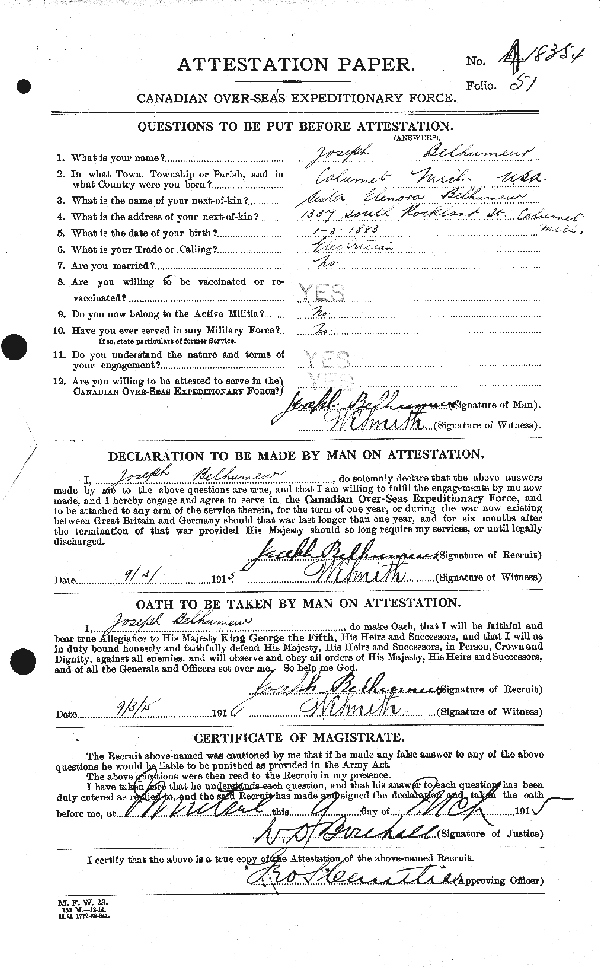 ATTESTATION PAPER.
No. A 18354
Folio. 51
CANADIAN OVER-SEAS EXPEDITIONARY FORCE.
QUESTIONS TO BE PUT BEFORE ATTESTATION.
(ANSWERS).
1. What is your name? Joseph Belhumeur
2. In what Town, Township or Parish, and in what Country were you born? Calumet Mich. USA
3. What is the name of your next-of-kin? Sister Elenora Belhumeur
4. What is the address of your next-of-kin? 1357 South Rockland St. Calumet Mich.
5. What is the date of your birth? 1-3-1883
6. What is your Trade or Calling? Electrician
7. Are you married? No
8. Are you willing to be vaccinated or re-
vaccinated? YES
9. Do you now belong to the Active Militia? No
10. Have you ever served in any Military Force? No
If so, state particulars of former Service.
11. Do you understand the nature and terms of
your engagement? YES
12. Are you willing to be attested to serve in the
CANADIAN OVER-SEAS EXPEDITIONARY FORCE? YES
Joseph Belhumeur (Signature of Man).
W Smith (Signature of Witness).
DECLARATION TO BE MADE BY MAN ON ATTESTATION.
I, Joseph Belhumeur do solemnly declare that the above answers
made by me to the above questions are true, and that I am willing to fulfil the engagements by me now
made, and I hereby engage and agree to serve in the Canadian Over-Seas Expeditionary Force, and
to be attached to any arm of the service therein, for the term of one year, or during the war now existing
between Great Britain and Germany should that war last longer than one year, and for six months after
the termination of that war provided His Majesty should so long require my services, or until legally
discharged.
Joseph Belhumeur (Signature of Recruit)
Date 9/2/ 1915 W Smith (Signature of Witness)
OATH TO BE TAKEN BY MAN ON ATTESTATION.
I, Joseph Belhumeur do make Oath, that I will be faithful and
bear true Allegiance to His Majesty King George the Fifth, His Heirs and Successors, and that I will as
in duty bound honestly and faithfully defend His Majesty, His Heirs and Successors, in Person, Crown and
Dignity, against all enemies, and will observe and obey all orders of His Majesty, His Heirs and Successors,
and of all the Generals and Officers set over me. So help me God.
Joseph Belhumeur (Signature of Recruit)
Date 9/3/15 191 W Smith (Signature of Witness)
CERTIFICATE OF MAGISTRATE.
The Recruit above-named was cautioned by me that if he made any false answer to any of the above
questions he would be liable to be punished as provided in the Army Act.
The above questions were then read to the Recruit in my presence.
I have taken care that he understands each question, and that his answer to each question has been
duly entered as replied to, and the said Recruit has made and signed the declaration and taken the oath
before me, at Montreal this 9 day of Mch 1915
(Signature of Justice)
I certify that the above is a true copy of the Attestation of the above-named Recruit.
(Approving Officer)
M. F. W. 23.